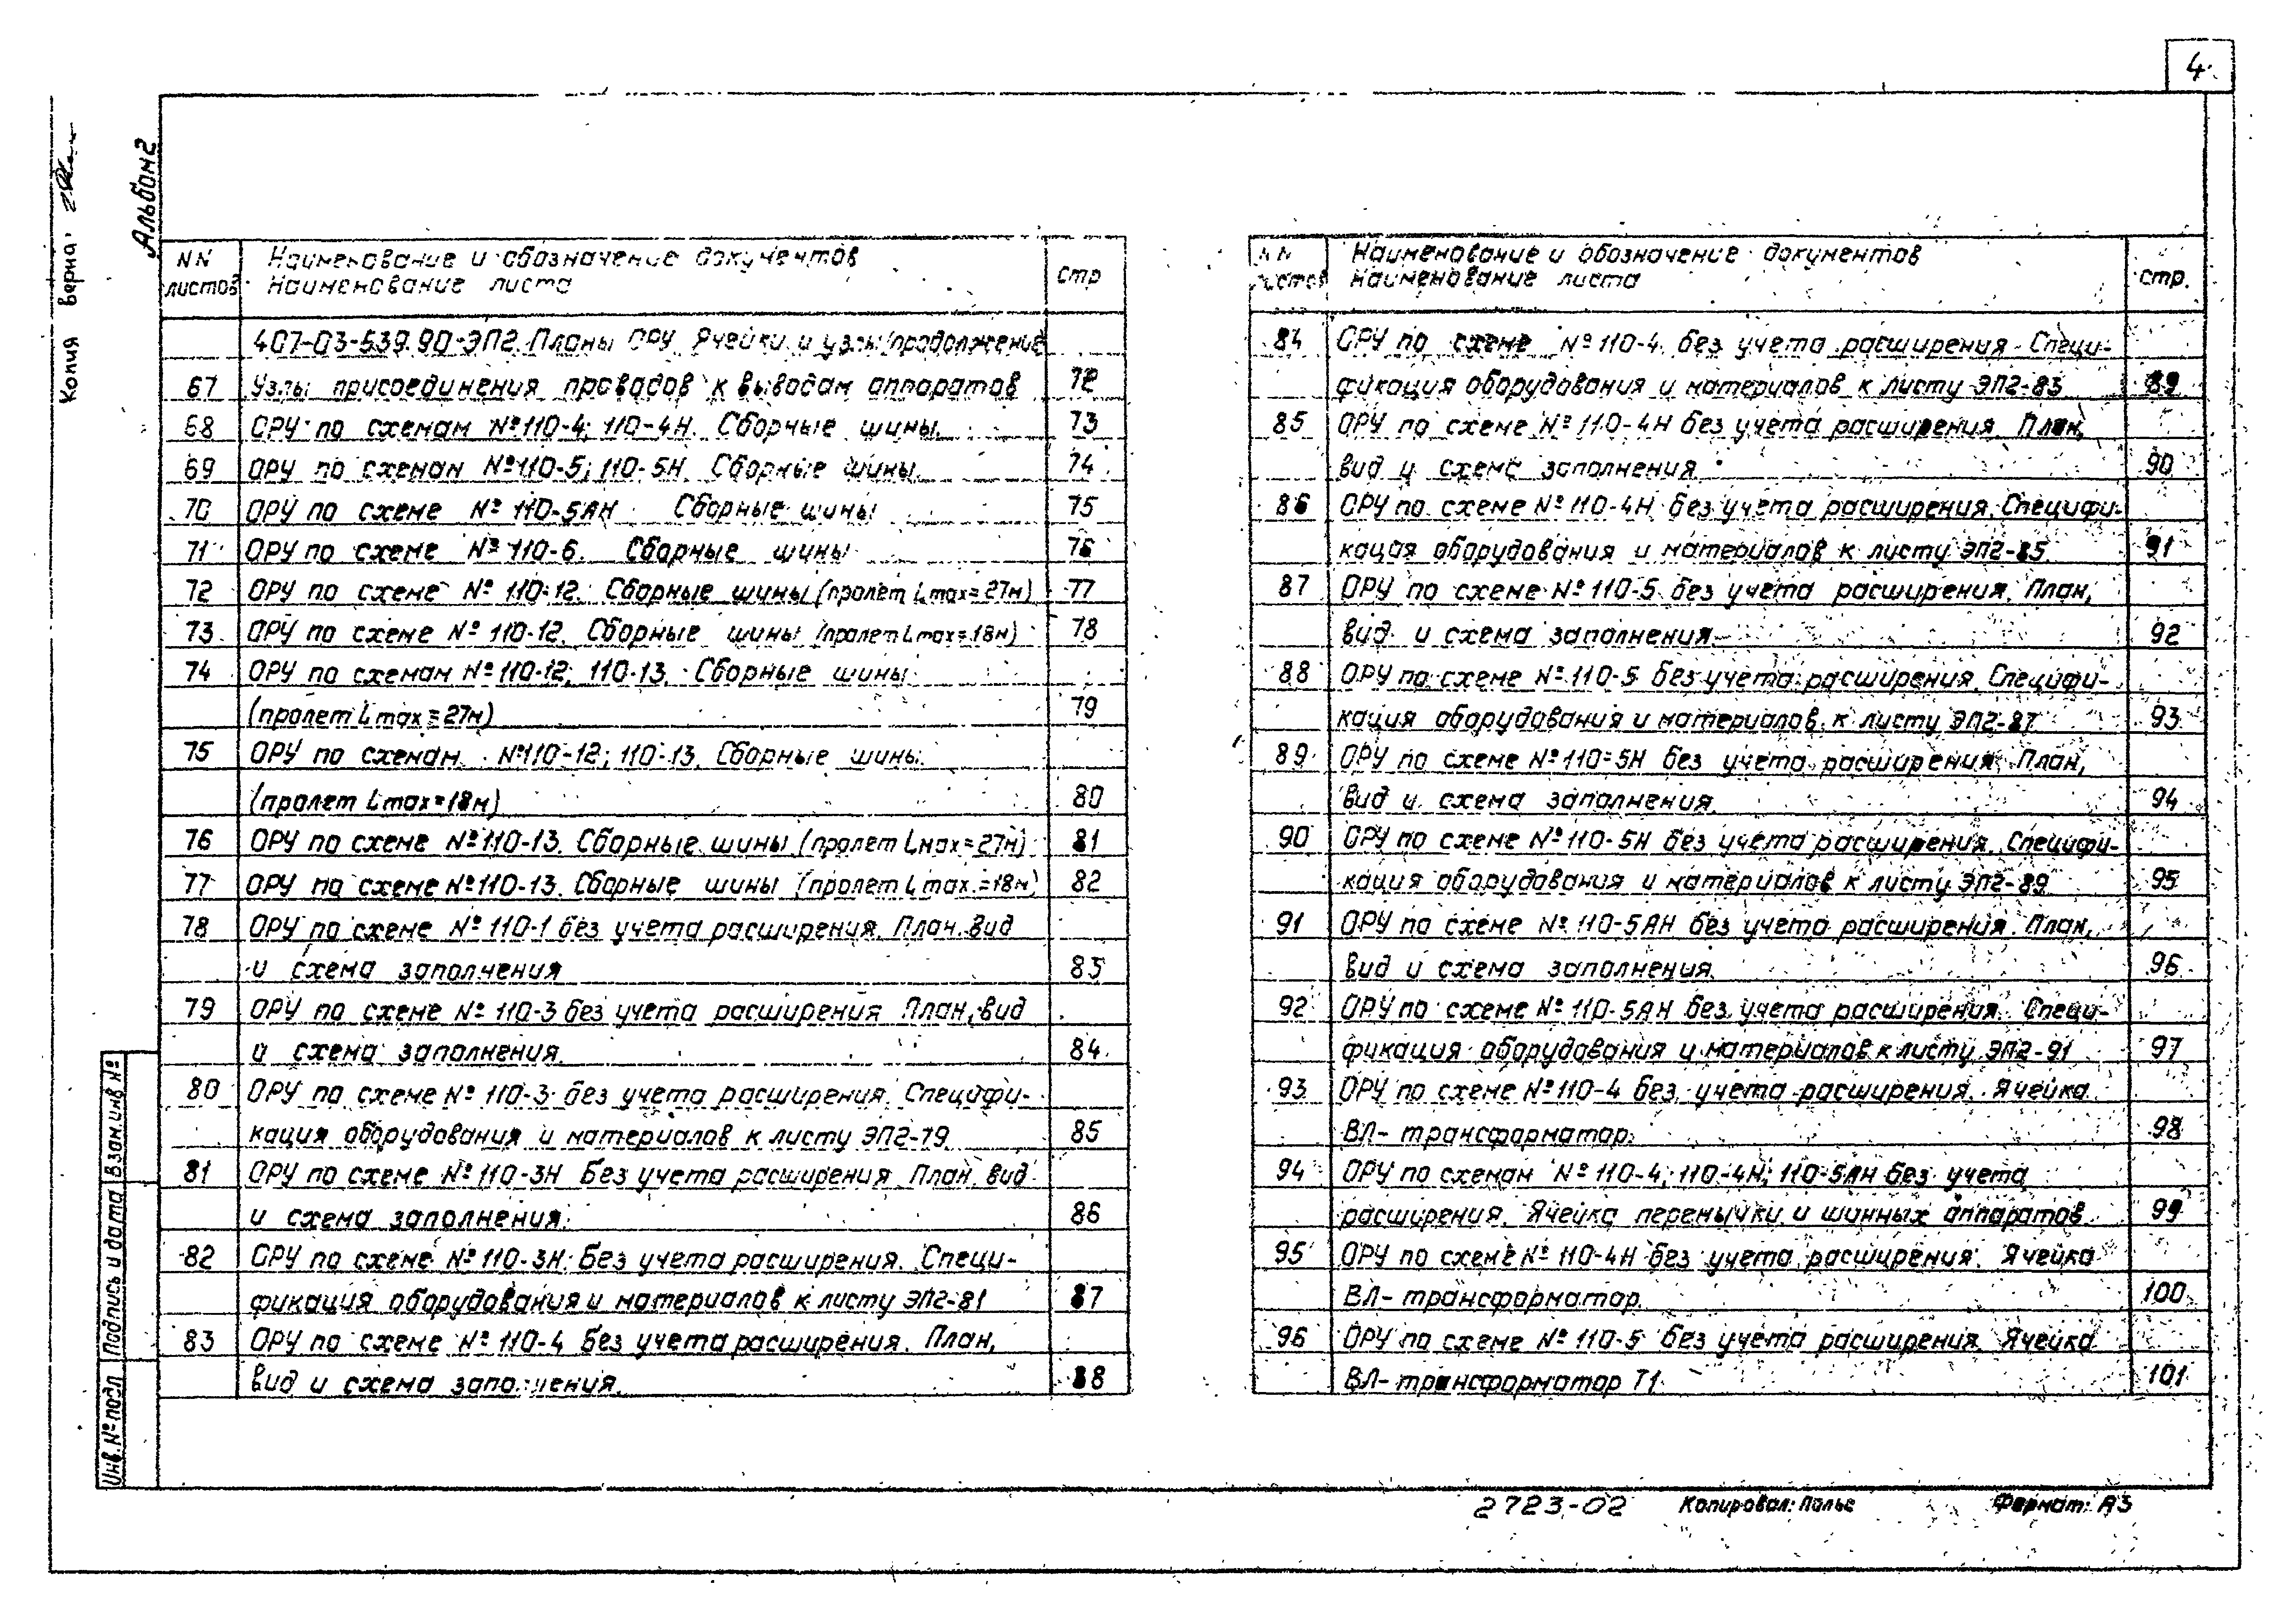 4
Копия верна:
Альбом 2
NN листов
Наименование и обозначение документов
Наименование листа
стр
407-03-539.90-ЭП2. Планы ОРУ. Ячейки и узлы (продолжение
67 Узлы присоединения проводов к выводам аппаратов 72
68 ОРУ по схемам №110-4; 110-4Н. Сборные шины. 73
69 ОРУ по схемам №110-5; 110-5Н. Сборные шины. 74
70 ОРУ по схеме № 110-5АН Сборные шины 75
71 ОРУ по схеме № 110-6. Сборные шины 76
72 ОРУ по схеме № 110-12. Сборные шины (пролет Lmax=27м) 77
73 ОРУ по схеме № 110-12. Сборные шины (пролет Lmax=18м) 78
74 ОРУ по схемам №110-12; 110-13. Сборные шины
(пролет Lmax=27м) 79
75 ОРУ по схемам №110-12; 110-13. Сборные шины
(пролет Lmax=18м) 80
76 ОРУ по схеме №110-13. Сборные шины (пролет Lмах=27м) 81
77 ОРУ по схеме №110-13. Сборные шины (пролет Lmax.=18м) 82
78 ОРУ по схеме № 110-1 без учета расширения. План. вид
и схема заполнения 83
79 ОРУ по схеме № 110-3 без учета расширения План, вид
и схема заполнения. 84
80 ОРУ по схеме № 110-3 без учета расширения. Специфи-
кация оборудования и материалов к листу ЭП2-79 85
81 ОРУ по схеме № 110-3Н Без учета расширения. План. вид
и схема заполнения. 86
82 ОРУ по схеме № 110-3Н Без учета расширения. Специ-
фикация оборудования и материалов к листу ЭП2-81 87
83 ОРУ по схеме № 110-4 Без учета расширения. План,
вид и схема заполнения. 88
NN листов
Наименование и обозначение документов
Наименование листа
стр.
84 ОРУ по схеме № 110-4 без учета расширения Специ-
фикация оборудования и материалов к листу ЭП2-83 89
85 ОРУ по схеме № 110-4Н без учета расширения. План,
вид и схема заполнения 90
86 ОРУ по схеме № 110-4Н без учета расширения. Специфи-
кация оборудования и материалов к листу ЭП2-85 91
87 ОРУ по схеме № 110-5 без учета расширения. План,
вид и схема заполнения 92
88 ОРУ по схеме № 110-5 без учета расширения. Специфи-
кация оборудования и материалов к листу ЭП2-87 93
89 ОРУ по схеме № 110-5Н без учета расширения План,
вид и схема заполнения. 94
90 ОРУ по схеме № 110-5Н без учета расширения. Специфи-
кация оборудования и материалов к листу ЭП2-89 95
91 ОРУ по схеме № 110-5АН без учета расширения. План,
вид и схема заполнения. 96
92 ОРУ по схеме № 110-5АН без учета расширения. Специ-
фикация оборудования и материалов к листу ЭП2-91 97
93 ОРУ по схеме № 110-4 без учета расширения. Ячейка
ВЛ-трансформатор. 98
94 ОРУ по схемам № 110-4; 110-4Н; 110-5АН без учета
расширения. Ячейка перемычки и шинных аппаратов 99
95 ОРУ по схеме № 110-4Н без учета расширения. Ячейка
ВЛ-трансформатор. 100
96 ОРУ по схеме № 110-5 без учета расширения. Ячейка
ВЛ-трансформатор Т1 101
Инв. № подл Подпись и дата Взам. инв №
2723-02 Копировал: Полье Формат: А3